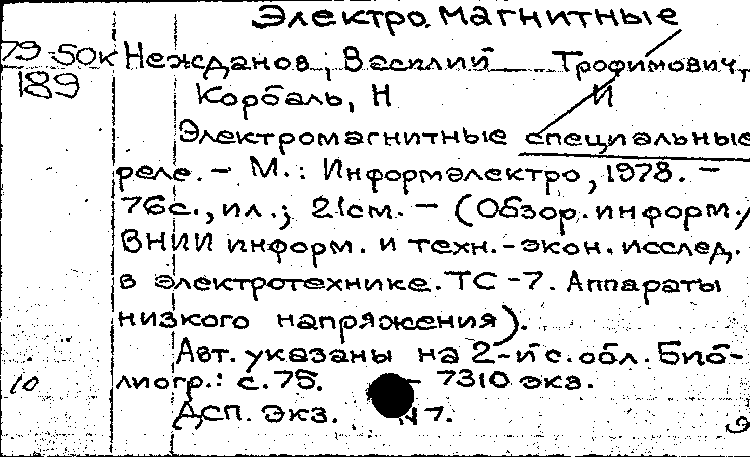 Электромагнитные
79-50к Нежданов, Василий Трофимович,
189 Корбаль, Н И
Электромагнитные специальные
реле. - М.: Информэлектро, 1978. -
76с., ил.; 21см. - (Обзор. информ./
ВНИИ информ. и техн.-экон. исслед.
в электротехнике. ТС-7. Аппараты
низкого напряжения).
Авт. указаны на 2-й с. обл. Биб-
10 лиогр.: с.75. - 7310 экз.
ДСП. Экз. N 7.